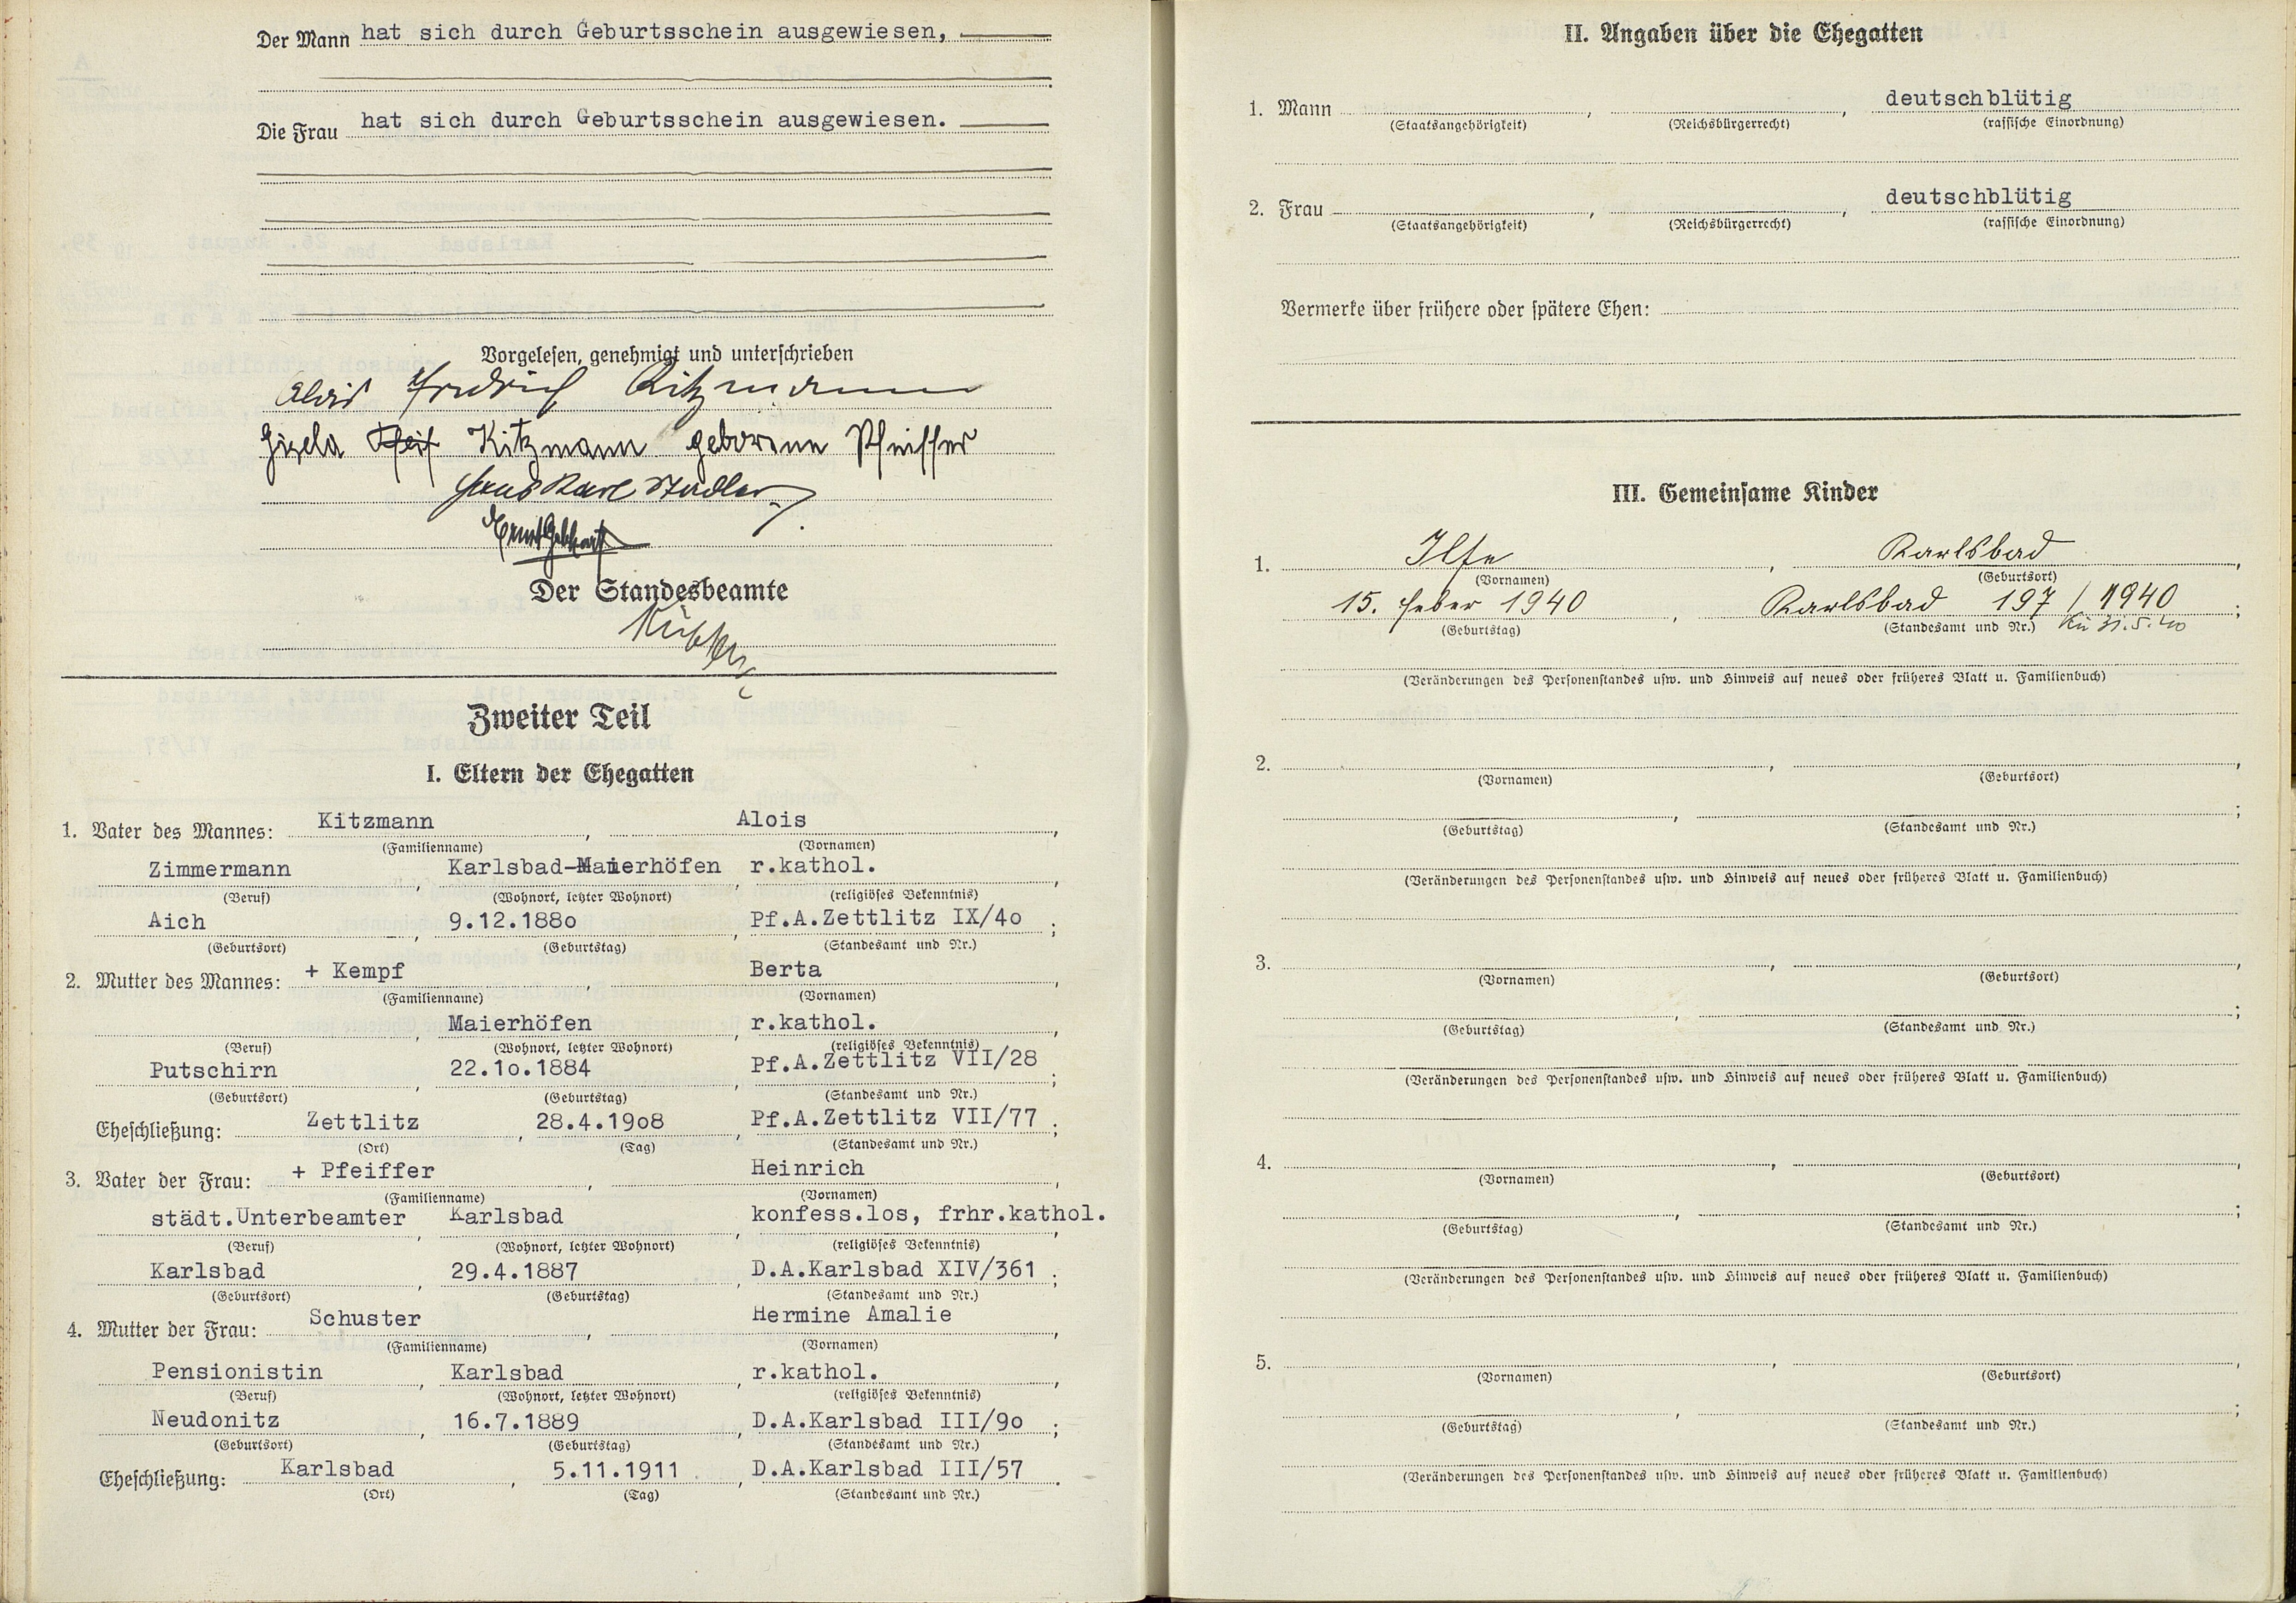 Der Mann hat sich durch Geburtsschein ausgewiesen,
Die Frau hat sich durch Geburtsschein ausgewiesen.
Vorgelesen, genehmigt und unterschrieben
Alois Friedrich Kitzmann
Gisela Pfeif Kitzmann geborene Pfeiffer
Hans Karl Stadler
Ernst Gebhart
Der Standesbeamte
Zweiter Teil
I. Eltern der Ehegatten
1. Vater des Mannes: Kitzmann, Alois,
(Familienname) (Vornamen)
Zimmermann, Karlsbad-Maierhöfen, r.kathol.,
(Beruf) (Wohnort, letzter Wohnort) (religiöses Bekenntnis)
Aich, 9.12.188o, Pf.A.Zettlitz IX/4o;
(Geburtsort) (Geburtstag) (Standesamt und Nr.)
2. Mutter des Mannes: + Kempf, Berta,
(Familienname) (Vornamen)
, Maierhöfen, r.kathol.,
(Beruf) (Wohnort, letzter Wohnort) (religiöses Bekenntnis)
Putschirn, 22.1o.1884, Pf.A.Zettlitz VII/28;
(Geburtsort) (Geburtstag) (Standesamt und Nr.)
Eheschließung: Zettlitz, 28.4.19o8, Pf.A.Zettlitz VII/77;
(Ort) (Tag) (Standesamt und Nr.)
3. Vater der Frau: + Pfeiffer, Heinrich,
(Familienname) (Vornamen)
städt.Unterbeamter, Karlsbad, konfess.los, frhr.kathol.,
(Beruf) (Wohnort, letzter Wohnort) (religiöses Bekenntnis)
Karlsbad, 29.4.1887, D.A.Karlsbad XIV/361;
(Geburtsort) (Geburtstag) (Standesamt und Nr.)
4. Mutter der Frau: Schuster, Hermine Amalie,
(Familienname) (Vornamen)
Pensionistin, Karlsbad, r.kathol.,
(Beruf) (Wohnort, letzter Wohnort) (religiöses Bekenntnis)
Neudonitz, 16.7.1889, D.A.Karlsbad III/9o;
(Geburtsort) (Geburtstag) (Standesamt und Nr.)
Eheschließung: Karlsbad, 5.11.1911, D.A.Karlsbad III/57.
(Ort) (Tag) (Standesamt und Nr.)
II. Angaben über die Ehegatten
1. Mann , , deutschblütig
(Staatsangehörigkeit) (Reichsbürgerrecht) (rassische Einordnung)
2. Frau , , deutschblütig
(Staatsangehörigkeit) (Reichsbürgerrecht) (rassische Einordnung)
Vermerke über frühere oder spätere Ehen:
III. Gemeinsame Kinder
1. Ilse, Karlsbad,
(Vornamen) (Geburtsort)
15. Feber 1940, Karlsbad 197/1940;
(Geburtstag) (Standesamt und Nr.) Kü 31.5.40
(Veränderungen des Personenstandes usw. und Hinweis auf neues oder früheres Blatt u. Familienbuch)
2. , ,
(Vornamen) (Geburtsort)
, ;
(Geburtstag) (Standesamt und Nr.)
(Veränderungen des Personenstandes usw. und Hinweis auf neues oder früheres Blatt u. Familienbuch)
3. , ,
(Vornamen) (Geburtsort)
, ;
(Geburtstag) (Standesamt und Nr.)
(Veränderungen des Personenstandes usw. und Hinweis auf neues oder früheres Blatt u. Familienbuch)
4. , ,
(Vornamen) (Geburtsort)
, ;
(Geburtstag) (Standesamt und Nr.)
(Veränderungen des Personenstandes usw. und Hinweis auf neues oder früheres Blatt u. Familienbuch)
5. , ,
(Vornamen) (Geburtsort)
, ;
(Geburtstag) (Standesamt und Nr.)
(Veränderungen des Personenstandes usw. und Hinweis auf neues oder früheres Blatt u. Familienbuch)